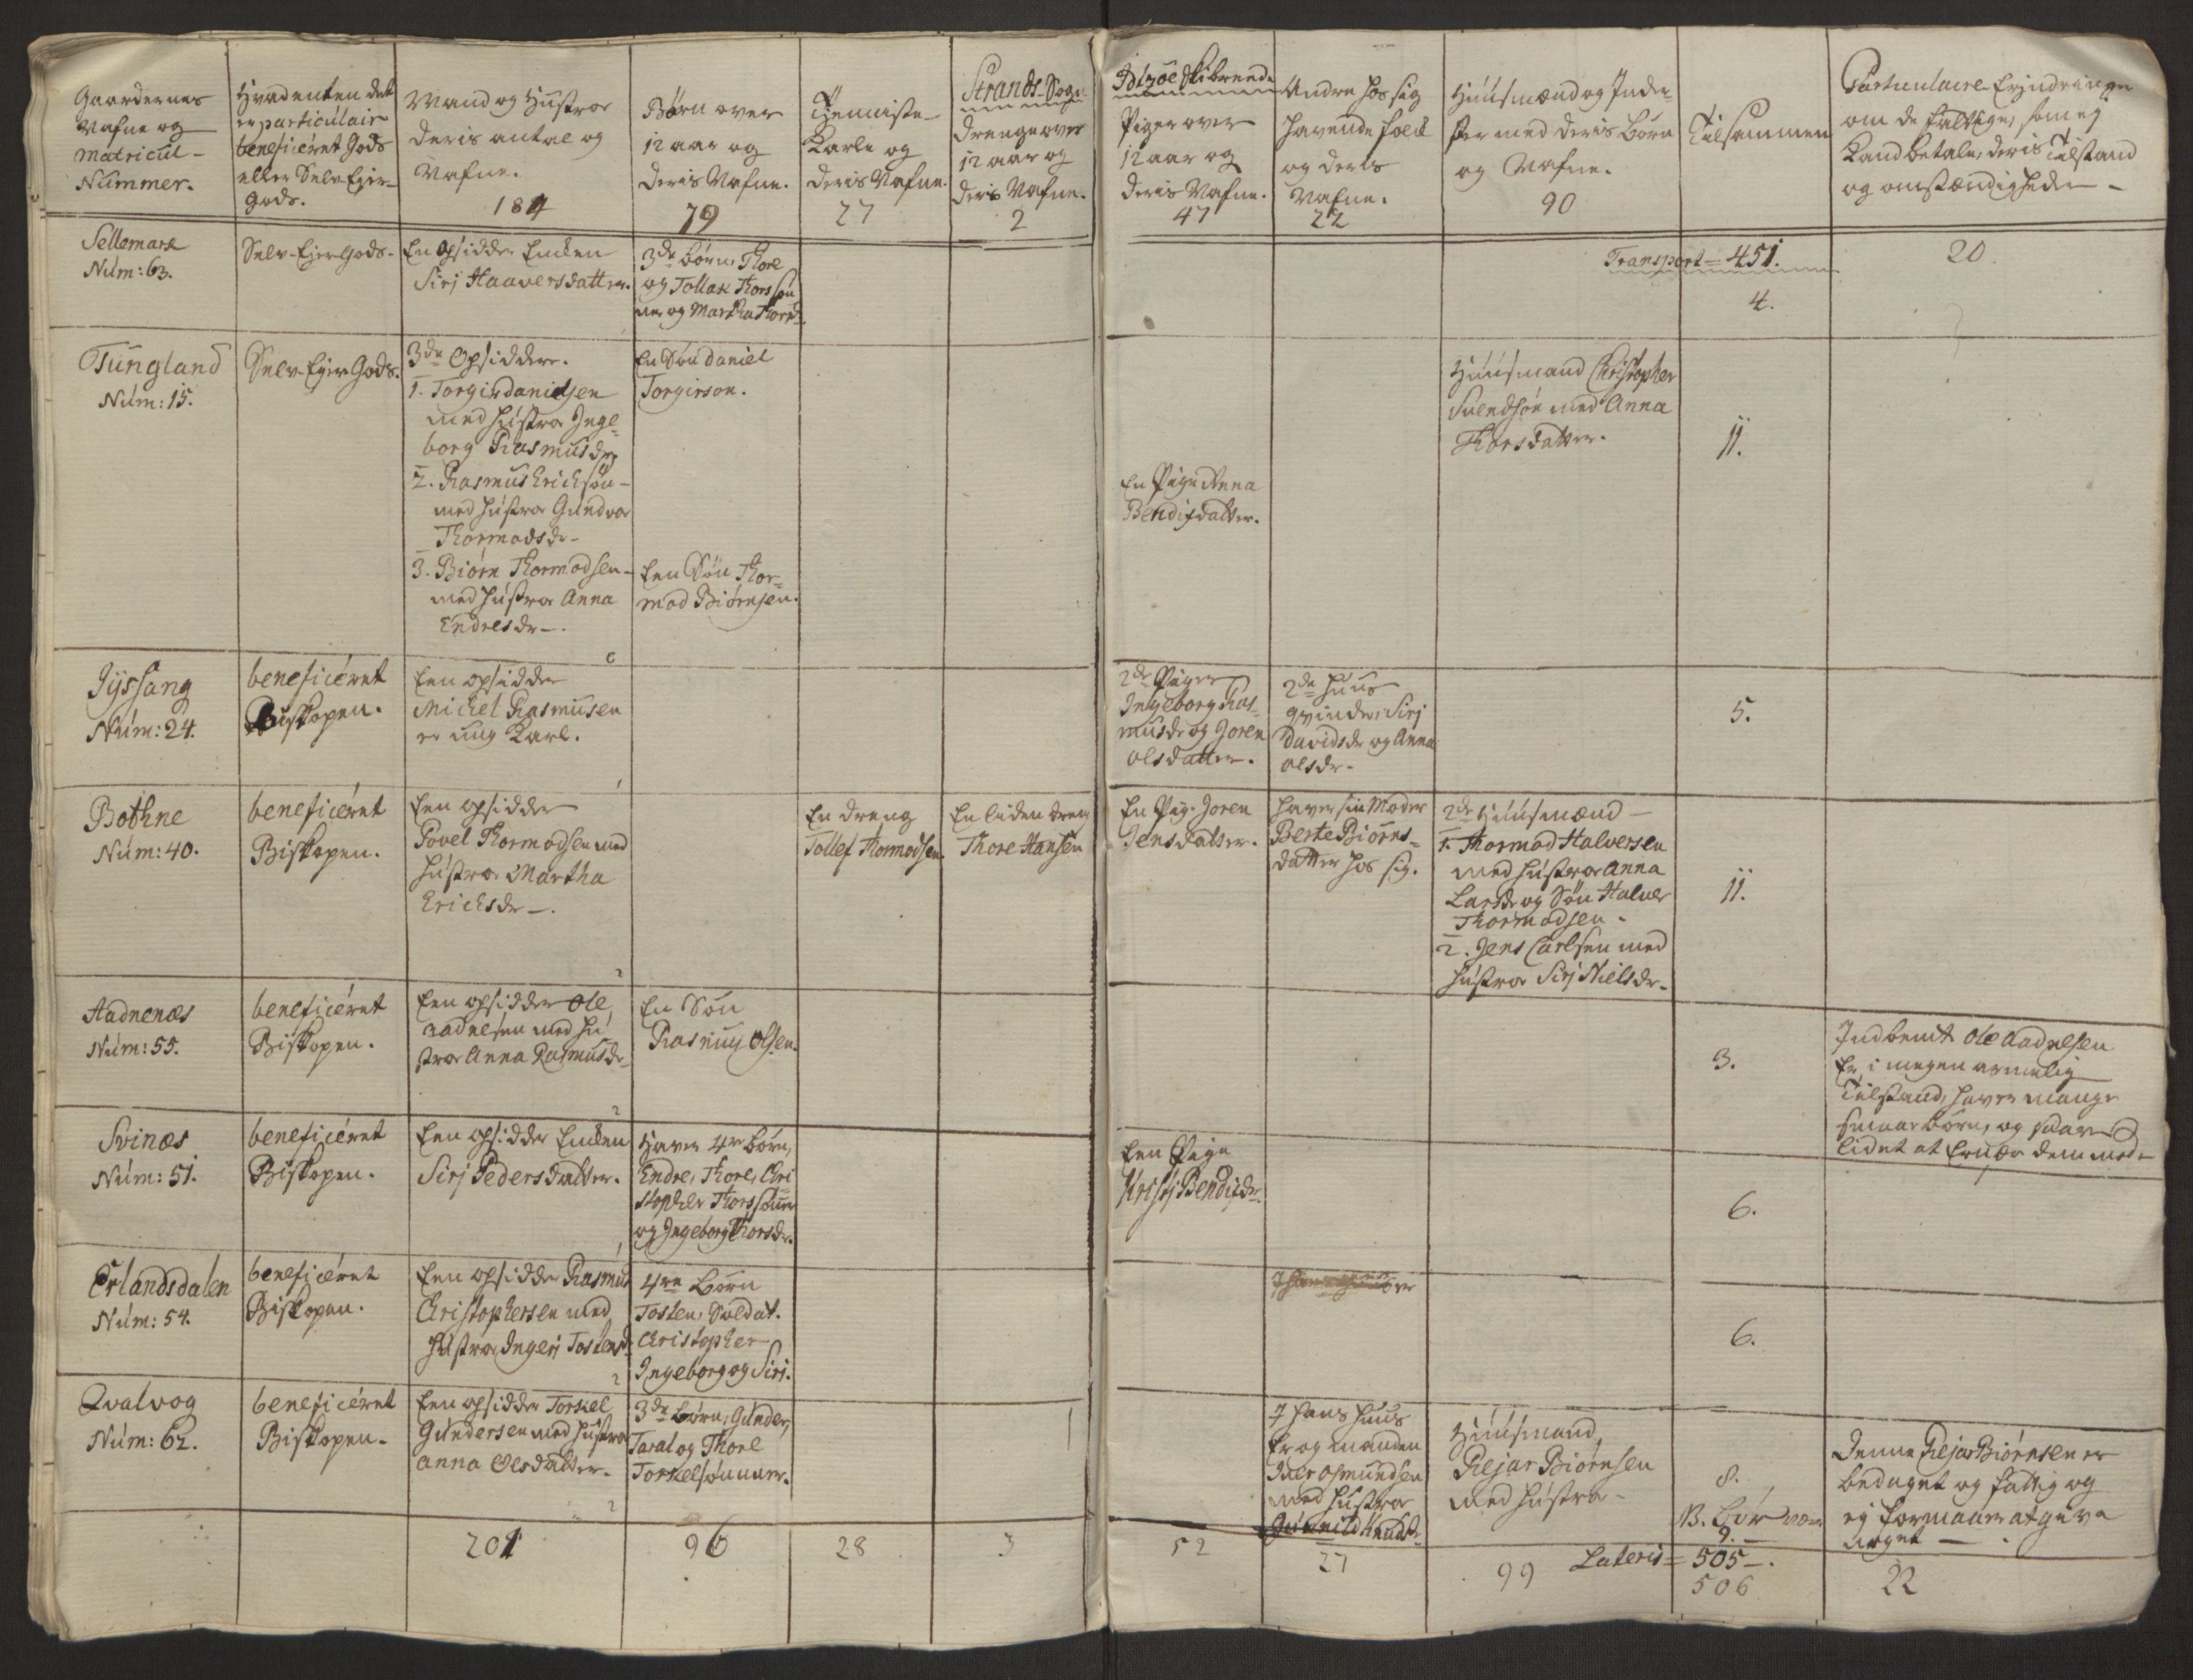 Gaardernes
Nafne og
Matricul-
Nummer.
Hvadenten det
er particulair
beneficeret Gods
eller Selv Ejer-
Gods.
Mand og Hustroe
deris antal og
Nafne.
184
Børn over
12 aar og
deris Nafne.
79
Tienniste-
Karle og
deris Nafne.
27
Strands-Sogn
Drenge over
12 aar og
deris Nafne.
2
Idtzøe Skibreede
Piger over
12 aar og
deris Nafne.
47
Andre hos sig
havende folck
og deris
Nafne.
22
Huusmænd og Inder-
ster med deris Børn
og Nafne.
90
Tilsammen
Particulaire Erindringer
om de fattige, som ej
Kand betale, deris Tilstand
og omstændigheder -
Sellemark
Num: 63.
Selv-Ejer Gods-
En Opsidder Encken
Sirj Haaversdatter.
3de børn, Thore
og Tollak Thorssøn
ner og Martha Thorsd.
Transport = 451.
4.
20
Tungland
Num: 15.
Selv-Ejer Gods.
3de Opsiddere.
1. Torgir Danielsen
med hustroe Inge-
borg Rasmusdr
2. Rasmus Erichsøn-
med hustroe Gundvor
Thormodsdr-
3. Biørn Thormodsen-
med hustroe Anna
Endresdr-.
En Søn Daniel
Torgirson.
Een Søn Thor-
mod Biørnsen.
En Pige Anna
Bendixdatter.
Huusmand Christopher
Svendsøn med Anna
Thorsdatter.
11.
Jyssang
Num: 24.
beneficeret
Biskopen.
Een opsidder
Michel Rasmusen
er ung Karl.
2de Piger
Ingeborg Ras-
musdr og Joren
Olsdatter.
2de huus
qvinder, Sirj
Davidsdr og Anna
Olsdr-
5.
Bothne
Num: 40.
beneficeret
Biskopen.
Een opsidder
Povel Thormodsen med
hustroe Martha
Erichsdr-.
En dreng
Tollef Thormodsen.
En liden dreng
Thore Hansen
En Pige Joren
Jensdatter.
haver sin Moder
Berte Biørns-
datter hos sig.
2de Huusmænd-
1. Thormod Halversen
med hustroe Anna
Larsdr og Søn Halver
Thormodsen-
2. Jens Carlsen med
hustroe Sirj Nielsdr-
11.
Aadnenæs
Num: 55.
beneficeret
Biskopen.
Een opsidder Ole,
Aadnesen med hu
stroe Anna Rasmusdr
En Søn
Rasmus Olsen.
3.
Indbemt Ole Aadnesen
Er i megen armelig
Tilstand, haver mange
smaae børn, og saare
lidet at Ernære dem med-
Svinæs
Num: 51.
beneficeret
Biskopen.
Een opsidder Encken
Sirj Pedersdatter.
Haver 4re børn,
Endre, Thore, Chri
stopher Thorssønner
og Ingeborg Thorsdr.
Een Pige
Kristj Bendixdr.
6.
Erlandsdalen
Num: 54.
beneficeret
Biskopen.
Een opsidder Rasmus
Christophersen med
hustroe Ingerj Tostensd.
4re børn
Tosten, Soldat.
Christopher
Ingeborg og Siri.
6.
Qvalvog
Num: 62.
beneficeret
Biskopen.
Een opsidder Torkel
Gundersen med hustroe
Anna Olsdatter.
3de børn, Gunder,
Taral og Thore
Torkelsønner.
J hans huus
Er og manden
Iver Osmundsen
med hustroe
Gunnild Knudsdr
Huusmand,
Rejar Biørnsen
med hustroe-
8.
NB. bør være
9.
Denne Rejar Biørnsen er
bedaget og fattig og
ej formaaer at give
noget -
201
96
28
3
52
27
99
Lateris = 505-.
506
22